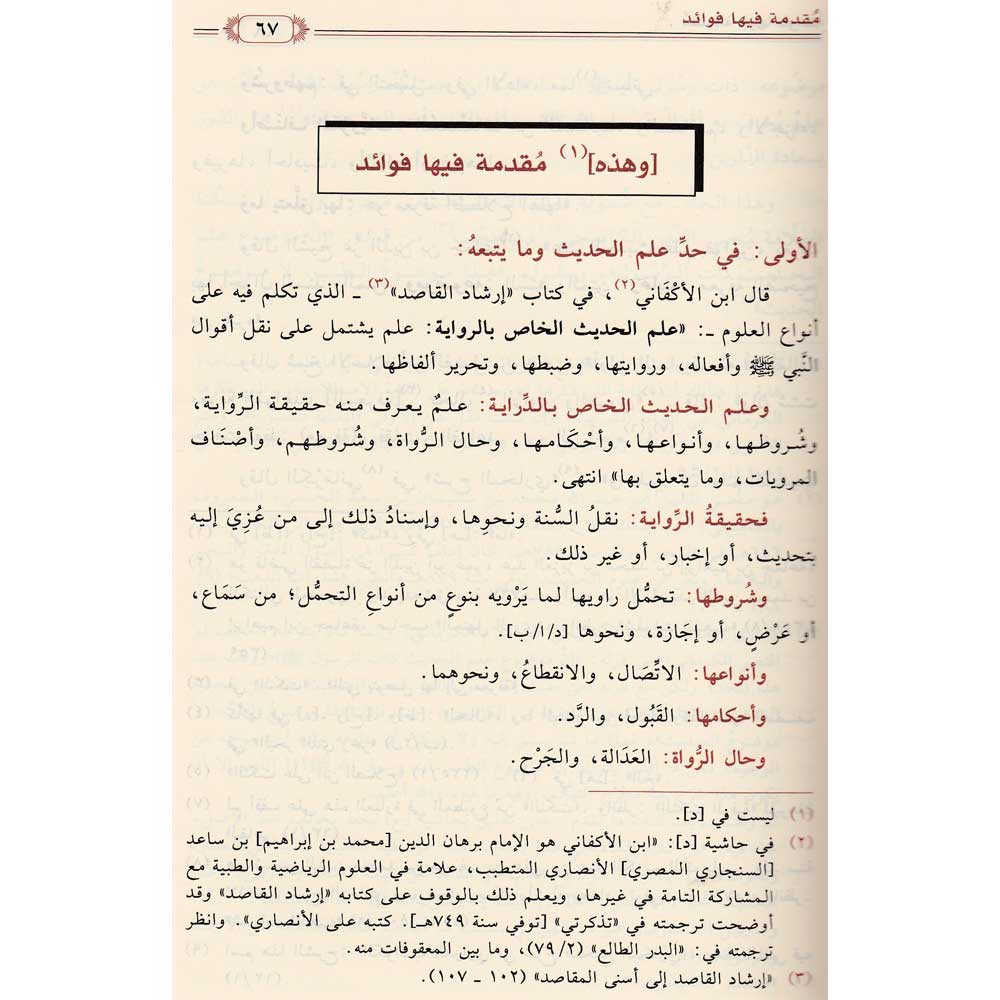 مُقدمة فيها فوائد
٦٧
[وهذه](١) مُقدمة فيها فوائد
الأولى: في حدِّ علم الحديث وما يتبعهُ:
قال ابن الأكْفَاني(٢)، في كتاب «إرشاد القاصد»(٣) ـ الذي تكلم فيه على
أنواع العلوم ـ: «علم الحديث الخاص بالرواية: علم يشتمل على نقل أقوال
النَّبي ﷺ وأفعاله، وروايتها، وضبطها، وتحرير ألفاظها.
وعلم الحديث الخاص بالدِّراية: علمٌ يعرف منه حقيقة الرِّواية،
وشُروطها، وأنواعها، وأحْكَامها، وحال الرُّواة، وشُروطهم، وأصْنَاف
المرويات، وما يتعلق بها» انتهى.
فحقيقةُ الرِّواية: نقلُ السُّنة ونحوِها، وإسنادُ ذلك إلى من عُزِيَ إليه
بتحديث، أو إخبار، أو غير ذلك.
وشُروطها: تحمُّل راويها لما يَرْويه بنوعٍ من أنواعِ التحمُّل؛ من سَمَاع،
أو عَرْضٍ، أو إجَازة، ونحوها [د/١/ب].
وأنواعها: الاتِّصَال، والانقطاعُ، ونحوهما.
وأحكامها: القَبُول، والرَّد.
وحال الرُّواة: العَدَالة، والجَرْح.
(١) ليست في [د].
(٢) في حاشية [د]: «ابن الأكفاني هو الإمام برهان الدين [محمد بن إبراهيم] بن ساعد
[السنجاري المصري] الأنصاري المتطبب، علامة في العلوم الرياضية والطبية مع
المشاركة التامة في غيرها، ويعلم ذلك بالوقوف على كتابه «إرشاد القاصد» وقد
أوضحت ترجمته في «تذكرتي» [توفي سنة ٧٤٩هـ]. كتبه على الأنصاري». وانظر
ترجمته في: «البدر الطالع» (٧٩/٢)، وما بين المعقوفات منه.
(٣) «إرشاد القاصد إلى أسنى المقاصد» (١٠٢ ـ ١٠٧).